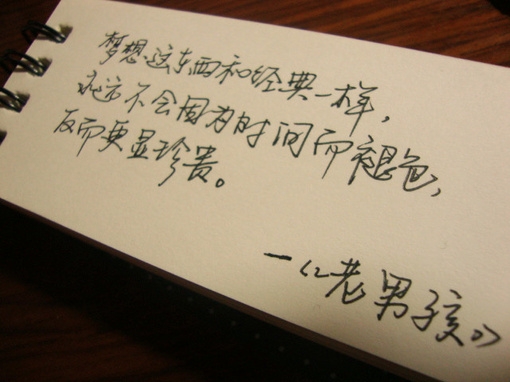 梦想这东西和经典一样，
永远不会因为时间而褪色，
反而更显珍贵。
—《老男孩》